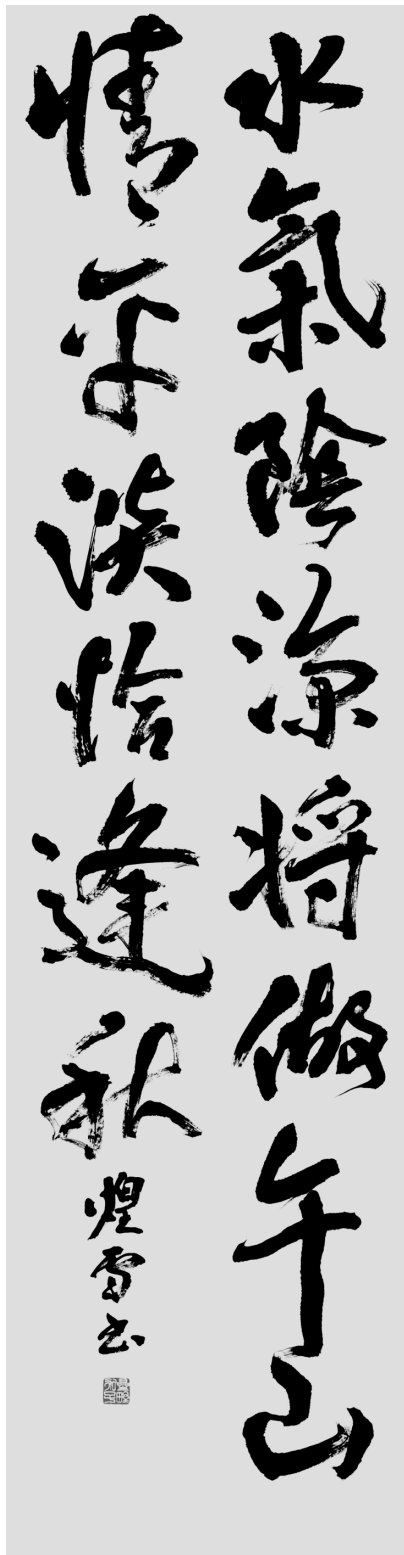 水氣陰涼将做午山
情平淡恰逢秋煌雪书